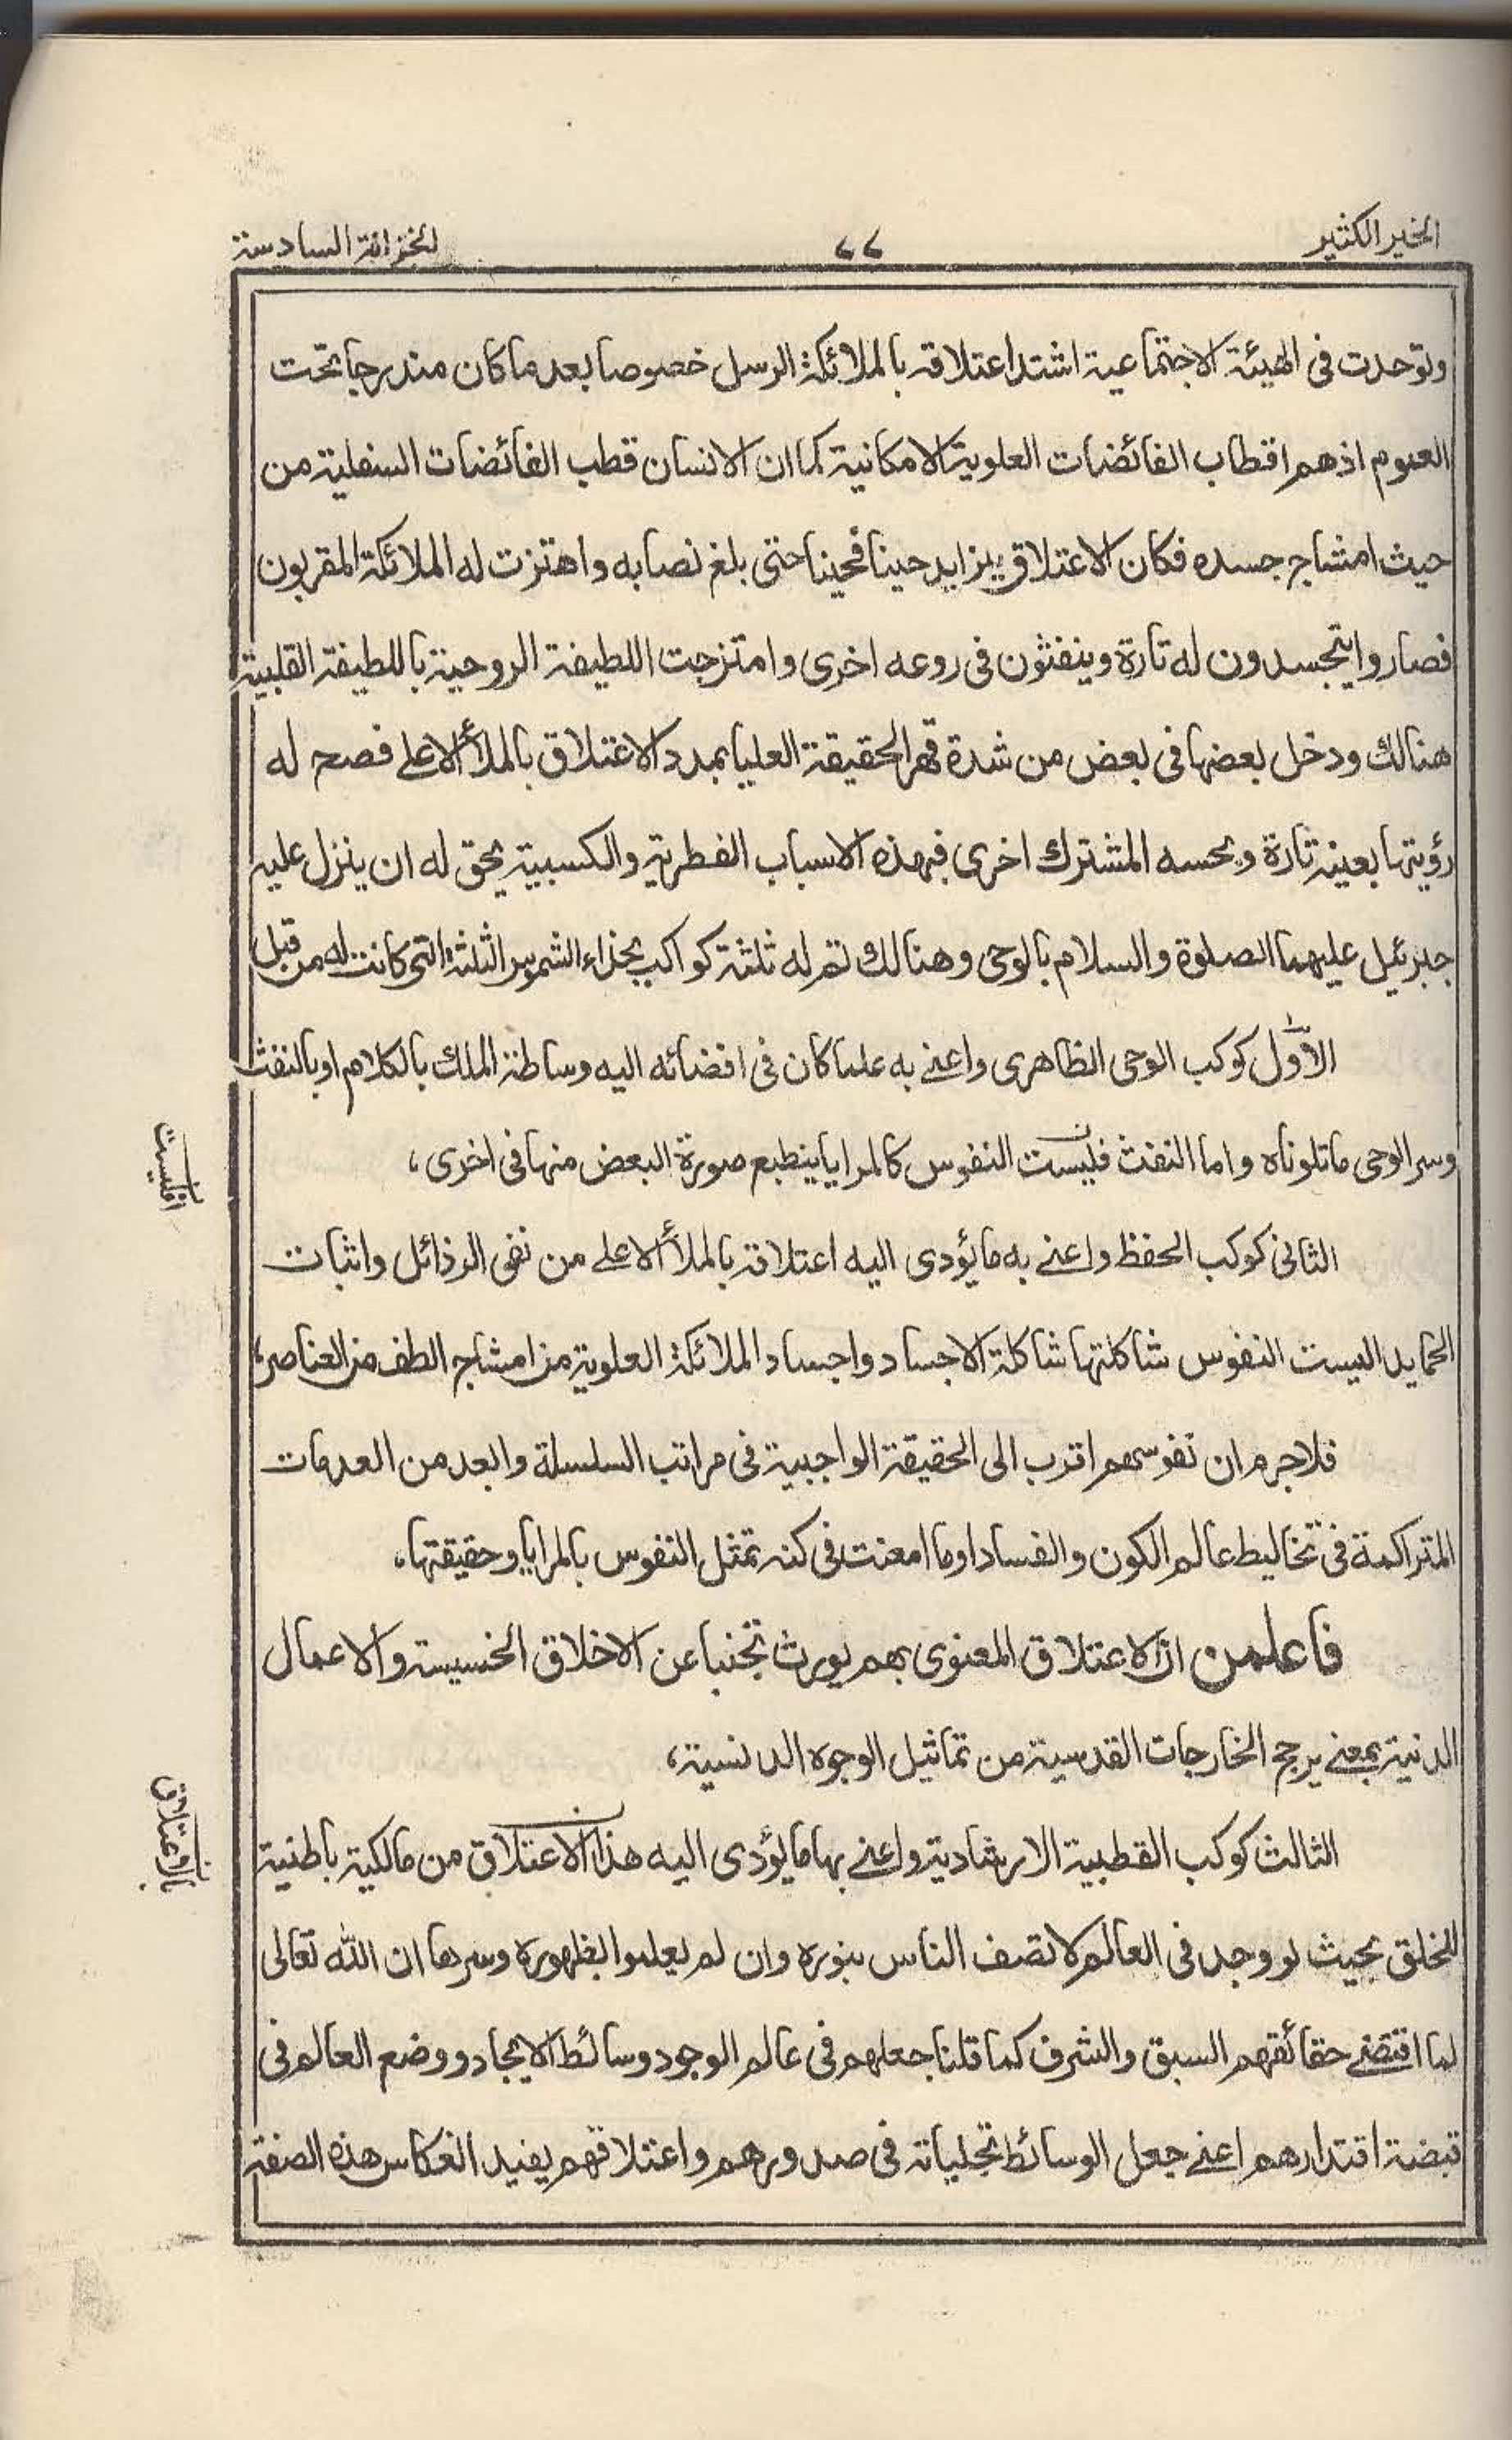 الخير الكثير
٧٧
الخزانة السادسة
وتوحدت فى الهيئة الاجتماعية اشتد اعتلاقه بالملائكة الرسل خصوصا بعد ما كان مندرجا تحت
العموم اذهم اقطاب الفائضات العلوية الامكانية كما ان الانسان قطب الفائضات السفلية من
حيث امشاج جسده فكان الاعتلاق يتزايد حينا فحينا حتى بلغ نصابه واهتزت له الملائكة المقربون
فصاروا يتجسدون له تارة وينفثون فى روعه اخرى وامتزجت اللطيفة الروحية باللطيفة القلبية
هنالك ودخل بعضها فى بعض من شدة قهر الحقيقة العليا بمدد الاعتلاق بالملأ الاعلے فصح له
رؤيتها بعينه تارة وبحسه المشترك اخرى فبهذه الاسباب الفطرية والكسبية يحق له ان ينزل عليه
جبرئيل عليهما الصلوة والسلام بالوحى وهنالك تقر له ثلثة كواكب بحذاء الشموس الثلثة التى كانت له من قبل
الاول كوكب الوحى الظاهرى واعنے به علما كان فى افضائه اليه وساطة الملك بالكلام او بالنفث
وسر الوحى ما تلوناه واما النفث فليست النفوس كالمرايا ينطبع صورة البعض منها فى اخرى،
افليست
الثانى كوكب الحفظ واعنے به ما يؤدى اليه اعتلاقه بالملأ الاعلے من نفى الرذائل واثبات
الحمايد اليست النفوس شاكلتها شاكلة الاجساد واجساد الملائكة العلوية من امشاج الطف من العناصر،
فلاجرم ان نفوسهم اقرب الى الحقيقة الواجبية فى مراتب السلسلة وابعد من العدمات
المتراكمة فى تخاليط عالم الكون والفساد اوما امعنت فى كنه تمثل النفوس بالمرايا وحقيقتها،
فاعلمن ان الاعتلاق المعنوى بهم يورث تجنبا عن الاخلاق الخسيسة والاعمال
الدنية بمعنے يرجح الخارجات القدسية من تماثيل الوجوه الدنسية،
الثالث كوكب القطبية الارشادية واعنے بها ما يؤدى اليه هذا الاعتلاق من مالكية باطنية
بالاعتلاق
للخلق بحيث لو وجد فى العالم لاتصف الناس بنوره وان لم يعلموا بظهوره وسرها ان الله تعالى
لما اقتضے حقائقهم السبق والشرف كما قلنا جعلهم فى عالم الوجود وسائط الايجاد ووضع العالم فى
قبضة اقتدارهم اعنے جعل الوسائط تجلياته فى صدورهم واعتلاقهم يفيد انعكاس هذه الصفة